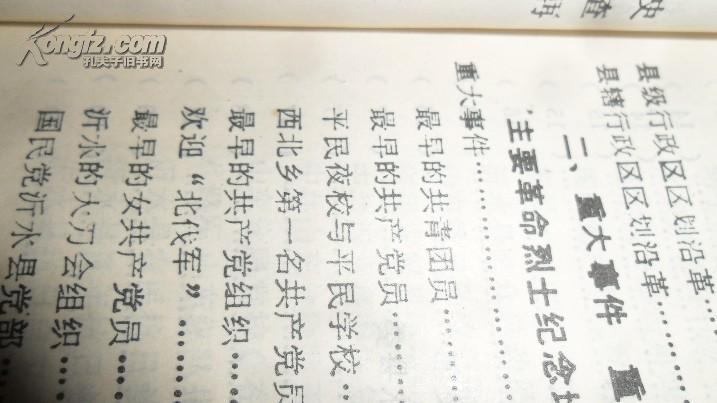 Kongfz.com
孔夫子旧书网
县级行政区区划沿革…
县辖行政区区划沿革…
二、重大事件 重
主要革命烈士纪念
重大事件…………
最早的共青团员……
最早的共产党员……
平民夜校与平民学校…
西北乡第一名共产党员
最早的共产党组织…
欢迎“北伐军”……
最早的女共产党员…
沂水的大刀会组织…
国民党沂水县党部…